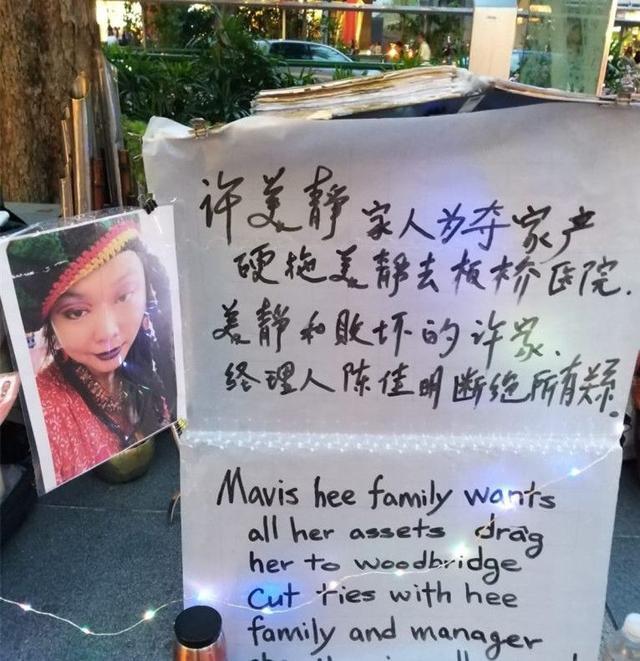 许美静 家人为夺家产
硬拖美静去板桥医院.
美静和败坏的许家、
经理人陈佳明断绝所有关系.
Mavis hee family wants
all her assets drag
her to woodbridge
Cut ties with hee
family and manager